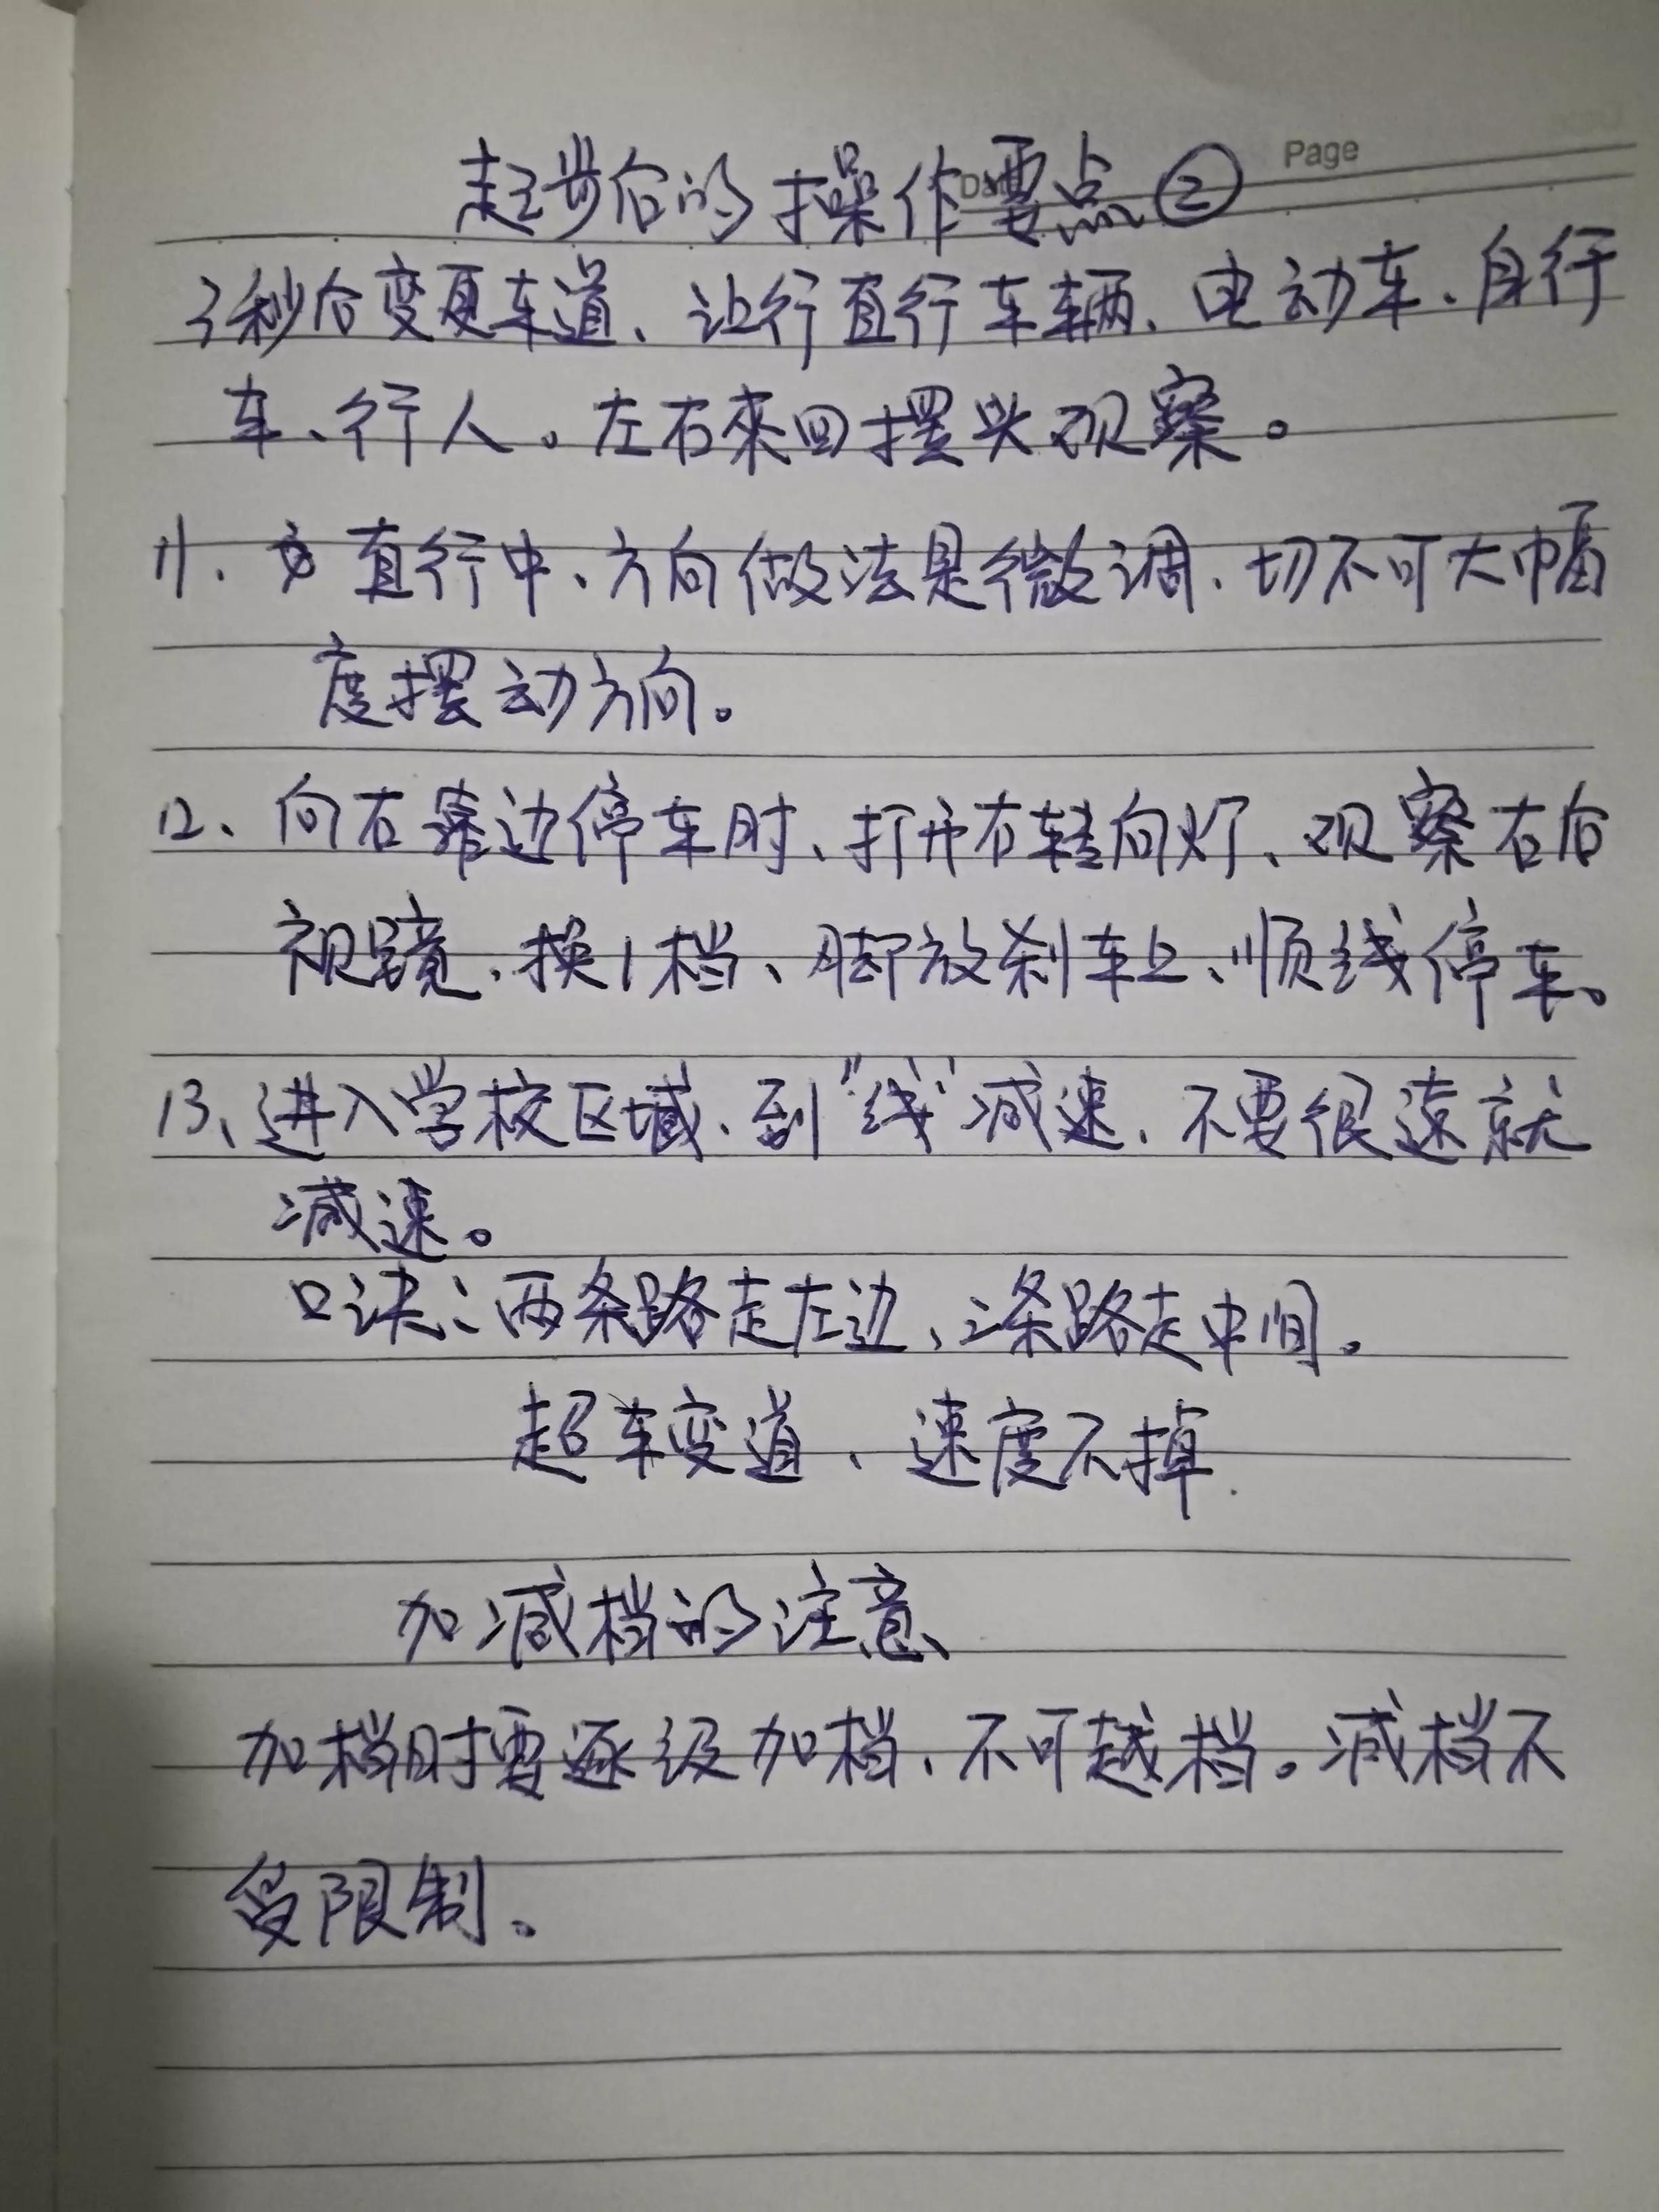 Page
起步后的操作要点②
3秒后变更车道、让行直行车辆、电动车、自行
车、行人。左右来回摆头观察。
11、直行中、方向做法是微调、切不可大幅
度摆动方向。
12、向右靠边停车时、打开右转向灯、观察右后
视镜、换1档、脚放刹车上、顺线停车。
13、进入学校区域、到“线”减速、不要很远就
减速。
口诀：两条路走左边、三条路走中间。
超车变道、速度不掉.
加减档的注意、
加档时要逐级加档、不可越档。减档不
受限制。